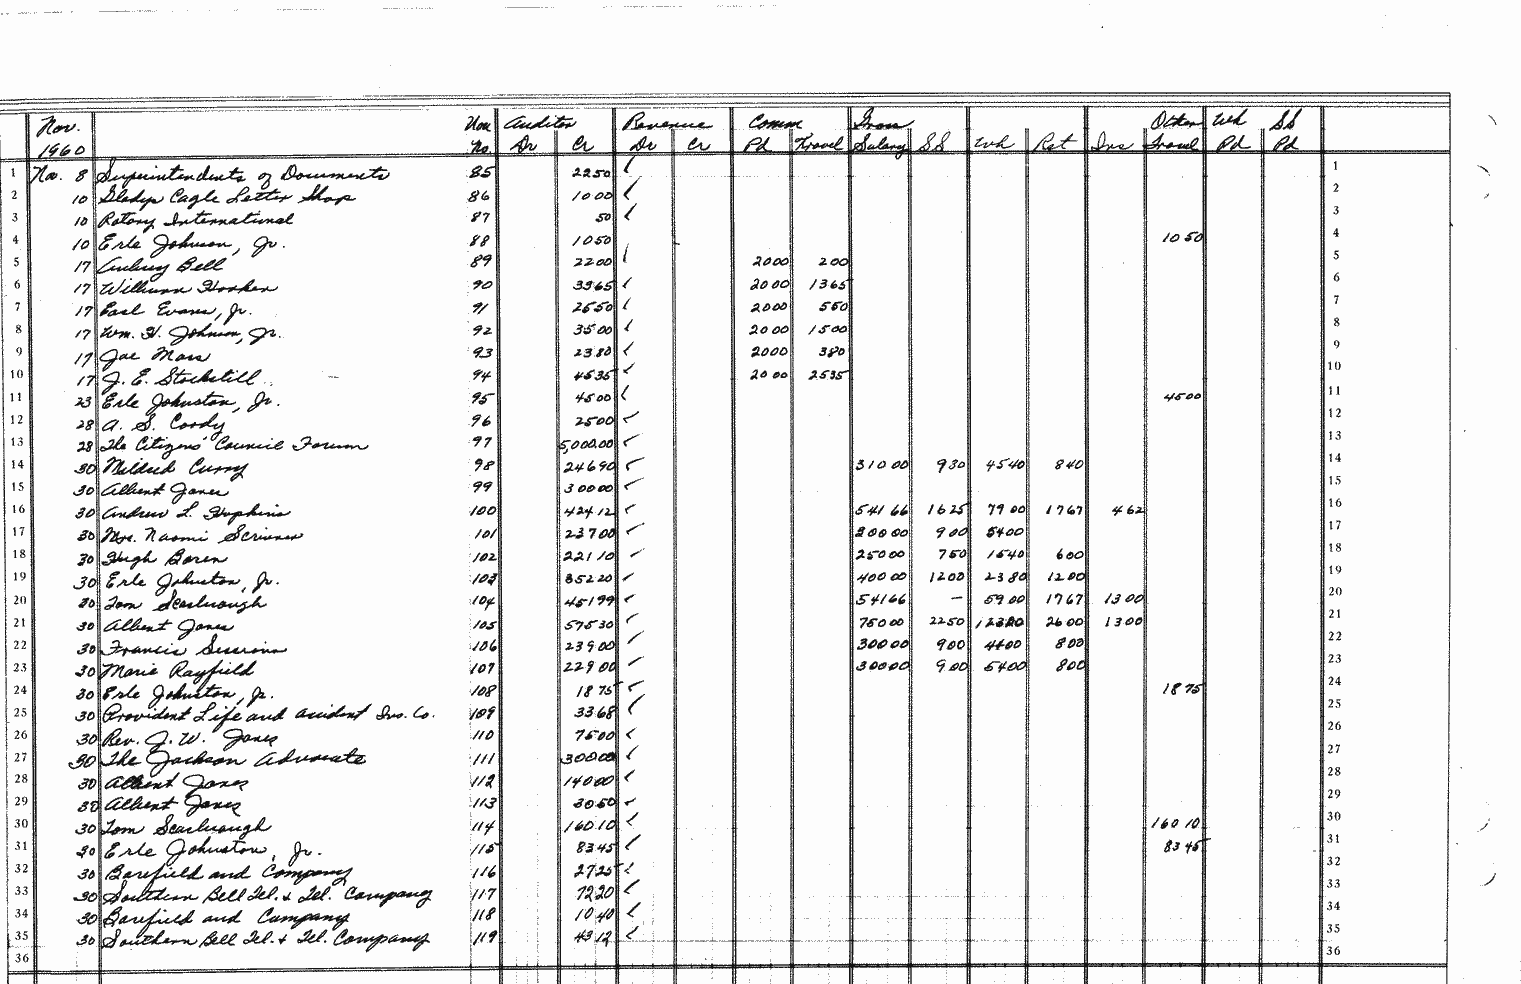 Nov. Vou. Auditor Revenue Comm Gross Other Wh SS
1960 No. Dr Cr Dr Cr Pd Travel Salary SS Wh Ret Ins Travel Pd Pd
1 Nov. 8 Superintendents of Documents 85 22 50 ✓ 1
2 10 Gladys Cagle Letter Shop 86 10 00 ✓ 2
3 10 Rotary International 87 50 ✓ 3
4 10 Erle Johnson, Jr. 88 10 50 10 50 4
5 17 Aubrey Bell 89 22 00 ✓ 20 00 2 00 5
6 17 William Hooker 90 33 65 ✓ 20 00 13 65 6
7 17 Earl Evans, Jr. 91 25 50 ✓ 20 00 5 50 7
8 17 Wm. H. Johnson, Jr. 92 35 00 ✓ 20 00 15 00 8
9 17 Joe Moss 93 23 80 ✓ 20 00 3 80 9
10 17 J. E. Stockstill 94 45 35 ✓ 20 00 25 35 10
11 23 Erle Johnston, Jr. 95 45 00 ✓ 45 00 11
12 28 A. S. Coody 96 25 00 ✓ 12
13 28 The Citizens' Council Forum 97 5,000.00 ✓ 13
14 30 Mildred Curry 98 246 90 ✓ 310 00 9 30 45 40 8 40 14
15 30 Albert Jones 99 300 00 ✓ 15
16 30 Andrew L. Hopkins 100 424 12 ✓ 541 66 16 25 79 00 17 67 4 62 16
17 30 Mrs. Naomi Scrivner 101 237 00 ✓ 300 00 9 00 54 00 17
18 30 Hugh Boren 102 221 10 ✓ 250 00 7 50 15 40 6 00 18
19 30 Erle Johnston, Jr. 103 352 20 ✓ 400 00 12 00 23 80 12 00 19
20 30 Tom Scarbrough 104 451 99 ✓ 541 66 — 59 00 17 67 13 00 20
21 30 Albert Jones 105 575 30 ✓ 750 00 22 50 26 00 13 00 21
22 30 Francis Sessions 106 239 00 ✓ 300 00 9 00 44 00 8 00 22
23 30 Marie Rayfield 107 229 00 ✓ 300 00 9 00 54 00 8 00 23
24 30 Erle Johnston, Jr. 108 18 75 ✓ 18 75 24
25 30 Provident Life and Accident Ins. Co. 109 33 68 ✓ 25
26 30 Rev. J. W. Jones 110 75 00 ✓ 26
27 30 The Jackson Advocate 111 300 00 ✓ 27
28 30 Albert Jones 112 140 00 ✓ 28
29 30 Albert Jones 113 30 50 ✓ 29
30 30 Tom Scarbrough 114 160 10 ✓ 160 10 30
31 30 Erle Johnston, Jr. 115 83 45 ✓ 83 45 31
32 30 Barefield and Company 116 27 25 ✓ 32
33 30 Southern Bell Tel. & Tel. Company 117 72 20 ✓ 33
34 30 Barefield and Company 118 10 40 ✓ 34
35 30 Southern Bell Tel. & Tel. Company 119 43 12 ✓ 35
36 36